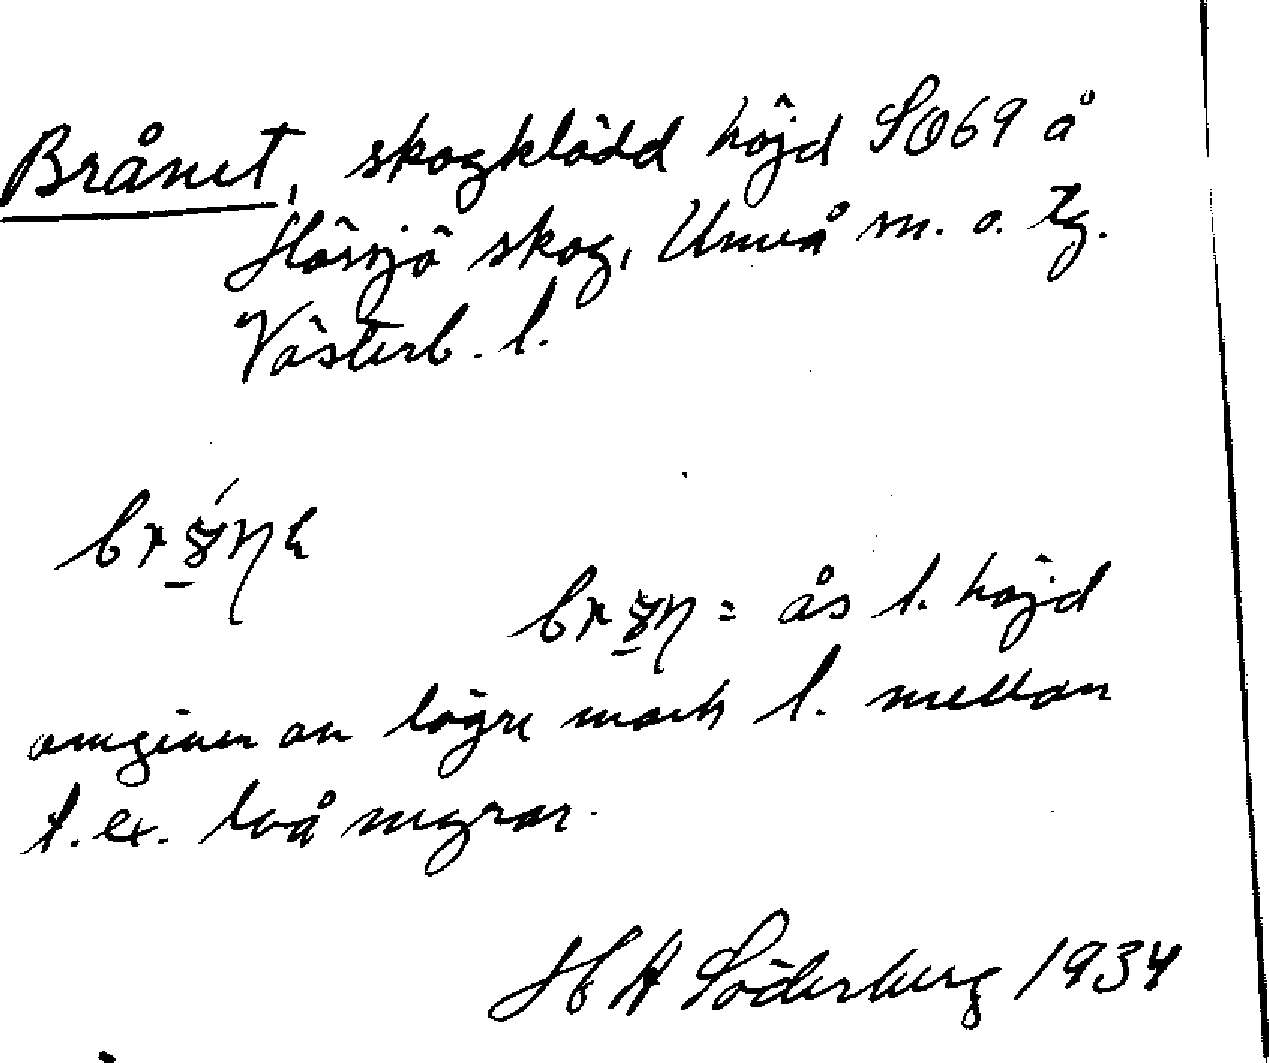 Brånet, skogklädd höjd SO69 å
Hössjö skog, Umeå m. o. tg.
Västerb. l.
omgiven av lägre mark l. mellan
t. ex. två myrar.
= ås l. höjd
H A Söderberg 1934